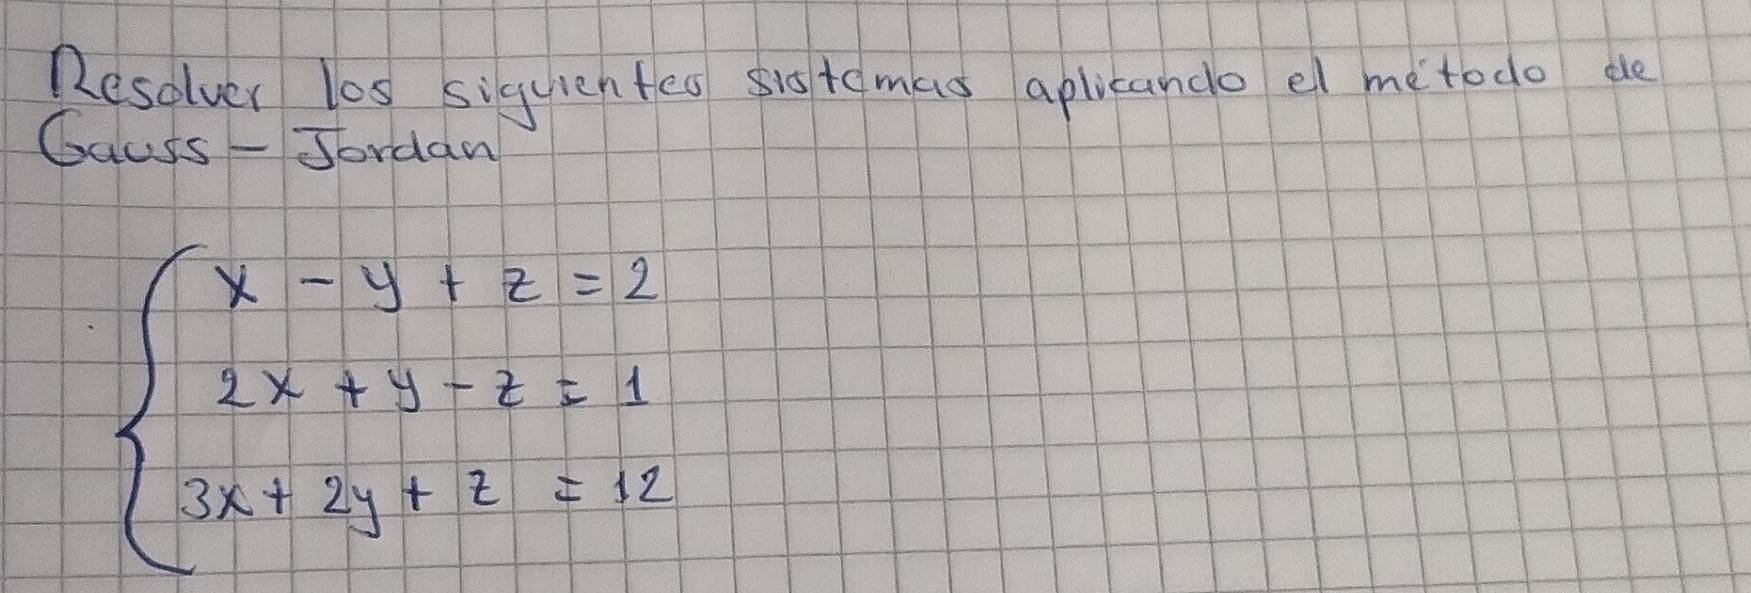 Resolver los siguientes sistemas aplicando el método de
Gauss - Jordan
x - y + z = 2
2x + y - z = 1
3x + 2y + z = 12